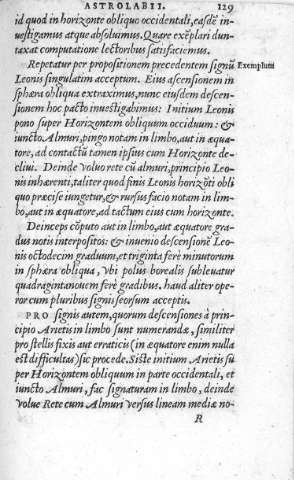 ASTROLABII. 129
id quod in horizonte obliquo occidentali, easdē in-
uestigamus atque absoluimus. Quare exēplari dun-
taxat computatione lectoribus satisfaciemus.
Repetatur per propositionem precedentem signū Exemplum
Leonis singulatim acceptum. Eius ascensionem in
sphæra obliqua extraximus, nunc eiusdem descen-
sionem hoc pacto inuestigabimus: Initium Leonis
pono super Horizontem obliquum occiduum: &
iuncto Almuri, pingo notam in limbo, aut in æqua-
tore, ad contactū tamen ipsius cum Horizonte de-
cliui. Deinde voluo rete cū almuri, principio Leo-
nis inhærenti, taliter quod finis Leonis horizōti obli
quo præcise iungetur, & rursus facio notam in lim-
bo, aut in æquatore, ad tactum eius cum horizonte.
Deinceps cōputo aut in limbo, aut æquatore gra-
dus notis interpositos: & inuenio descensionē Leo-
nis octodecim graduum, et triginta ferè minutorum
in sphæra obliqua, vbi polus borealis subleuatur
quadragintanouem ferè gradibus. haud aliter ope-
ror cum pluribus signis seorsum acceptis.
PRO signis autem, quorum descensiones à prin-
cipio Arietis in limbo sunt numerandæ, similiter
pro stellis fixis aut erraticis (in æquatore enim nulla
est difficultas) sic procede. Siste initium Arietis sū
per Horizontem obliquum in parte occidentali, et
iuncto Almuri, fac signaturam in limbo, deinde
volue Rete cum Almuri versus lineam mediæ no-
R